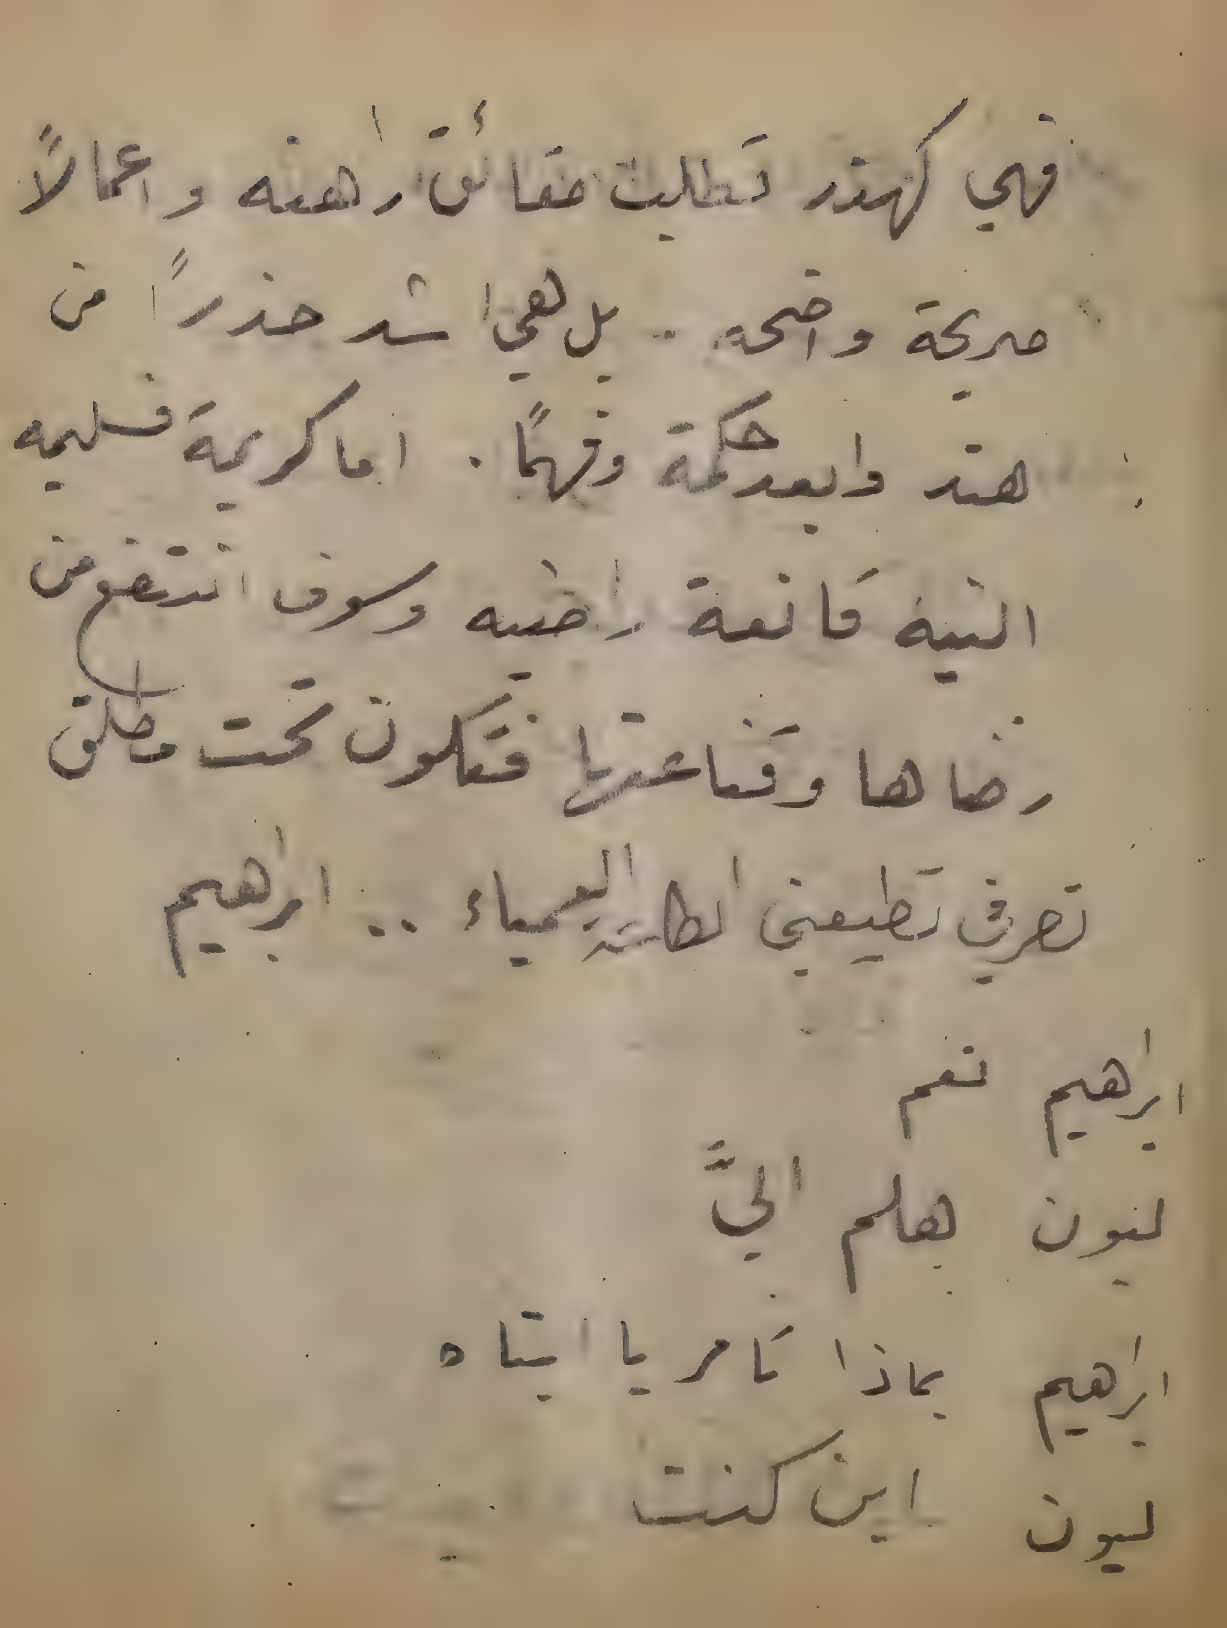 فهي كهند تطلب حقائق راهنه واعمالاً
صريحة واضحة .. بل هي اشد حذراً من
هند وابعد حكمة وفهمًا . اما كريمة فسليمه
النية قانعة راضيه وسوف انتفع من
رضاها وقناعتها فتكون تحت مطلق
تصرفي تطيعني الطاعة العمياء .. ابرهيم
ابرهيم نعم
ليون هلم اليَّ
ابرهيم بماذا تامر يا ابتاه
ليون اين كنت